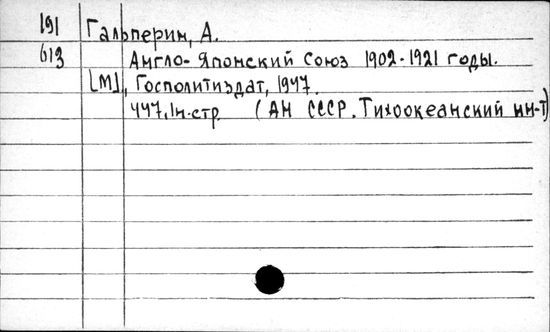 191 Гальперин, А.
613 Англо-Японский Союз 1902-1921 годы.
[М], Госполитиздат, 1947.
447, 1н. стр. (АН СССР. Тихоокеанский ин-т)